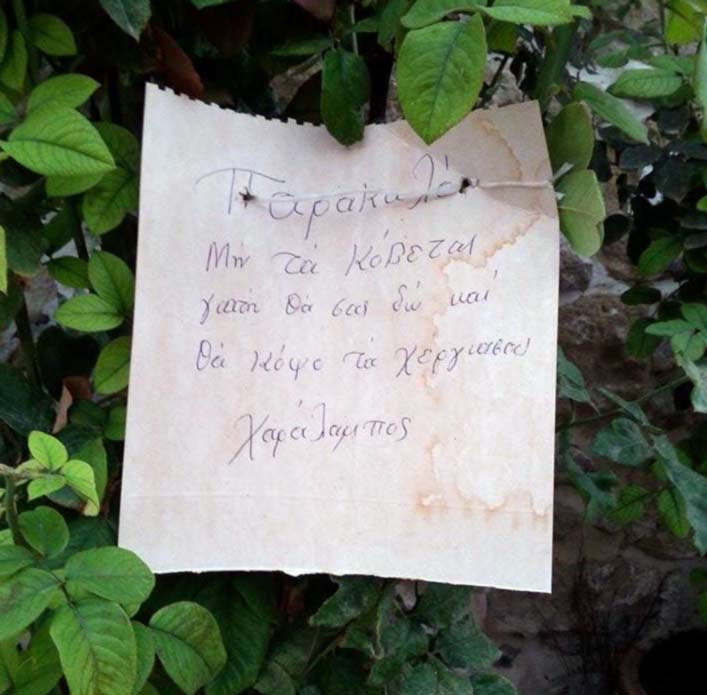 Παρακαλώ
Μήν τά Κόβεται
γιατή θά σας δώ καί
θά κόψο τά χεργιασας
Χαράλαμπος